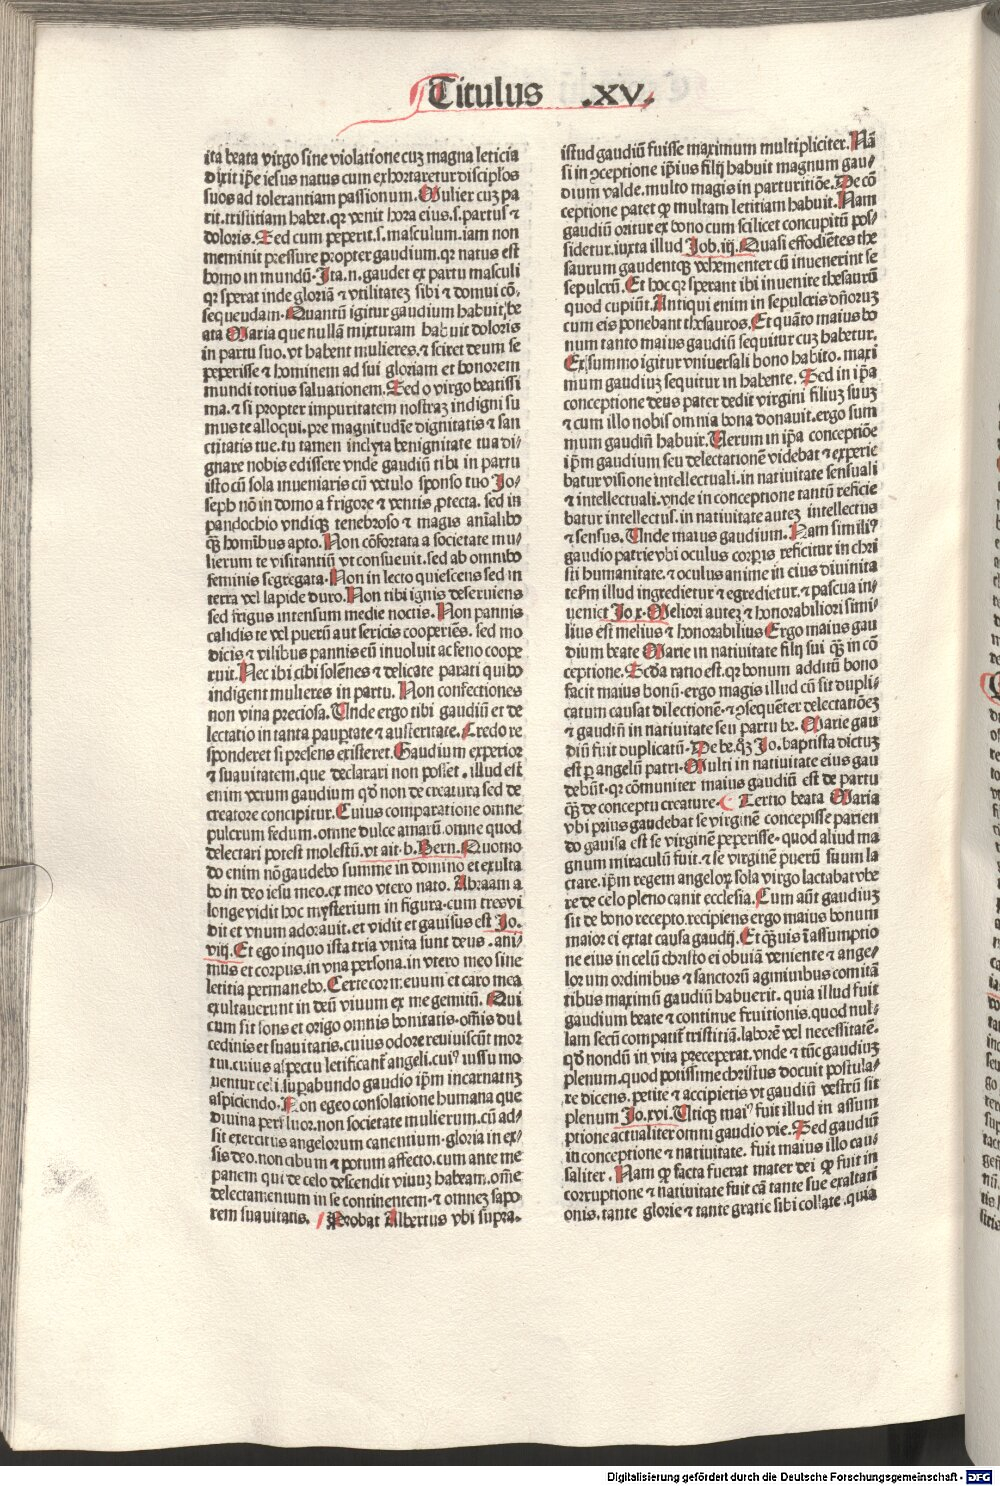 Titulus .xv.
ita beata virgo sine violatione cuʒ magna leticia
dixit ip̄e iesus natus cum exhortaretur discip̄los
suos ad tolerantiam passionum. Mulier cuʒ pa
rit. tristitiam habet. qꝛ venit hora eius. s. partus ⁊
doloris. Sed cum peperit. s. masculum. iam non
meminit pressure propter gaudium. qꝛ natus est
homo in mundū. Ita. n. gaudet ex partu masculi
qꝛ sperat inde gloriā ⁊ vtilitateʒ sibi ⁊ domui cō⸗
sequendam. Quantū igitur gaudium habuit be
ata Maria que nullā mixturam habuit doloris
in partu suo. vt habent mulieres. ⁊ sciret deum se
peperisse ⁊ hominem ad sui gloriam et honorem
mundi totius saluationem. Sed o virgo beatissi
ma. ⁊ si propter impuritatem nostraʒ indigni su
mus te alloqui. pre magnitudīe dignitatis ⁊ san
ctitatis tue. tu tamen inclyta benignitate tua di⸗
gnare nobis edissere vnde gaudiū tibi in partu
isto cū sola inueniaris cū vetulo sponso tuo Jo⸗
seph nō in domo a frigore ⁊ ventis ꝓtecta. sed in
pandochio vndiqʒ tenebroso ⁊ magis aīalibꝰ
qʒ̄ homībus apto. Non cōfortata a societate mu⸗
lierum te visitantiū vt consueuit. sed ab omnibꝰ
feminis segregata. Non in lecto quiescens sed in
terra vel lapide duro. Non tibi ignis deseruiens
sed frigus intensum medie noctis. Non pannis
calidis te vel puerū aut sericis cooperiēs. sed mo
dicis ⁊ vilibus pannis eū inuoluit ac feno coope
ruit. Nec ibi cibi solēnes ⁊ delicate parati quibꝰ
indigent mulieres in partu. Non confectiones
non vina preciosa. Unde ergo tibi gaudiū et de
lectatio in tanta paup̄tate ⁊ austeritate. Credo re
sponderet si presens existeret. Gaudium experior
⁊ suauitatem. que declarari non posset. illud est
enim verum gaudium qđ non de creatura sed de
creatore concipitur. Cuius comparatione omne
pulcrum fedum. omne dulce amarū. omne quod
delectari potest molestū. vt ait. b. Bern. Quomo
do enim nō gaudebo summe in domino et exulta
bo in deo iesu meo. ex meo vtero nato. Abraam a
longe vidit hoc mysterium in figura. cum tres vi
dit et vnum adorauit. et vidit et gauisus est Jo.
viij. Et ego inquo ista tria vnita sunt deus. ani⸗
mus et corpus. in vna persona. in vtero meo sine
letitia permanebo. Certe cor meum et caro mea
exultauerunt in deū viuum ex me genitū. Qui
cum sit fons et origo omnis bonitatis. om̄is dul
cedinis et suauitatis. cuius odore reuiuiscūt mor
tui. cuius aspectu letificant̄ angeli. cuiꝰ iussu mo
uentur celi. superabundo gaudio ip̄m incarnatuʒ
aspiciendo. Non egeo consolatione humana que
diuina perfluor. non societate mulierum. cū ad⸗
sit exercitus angelorum canentium. gloria in ex⸗
sis deo. non cibum ⁊ potum affecto. cum ante me
panem qui de celo descendit viuuʒ habeam. om̄e
delectamentum in se continentem. ⁊ omneʒ sapo
rem suauitatis. Probat Albertus vbi supra.
istud gaudiū fuisse maximum multipliciter. Nā
si in ꝯceptione ip̄ius filij habuit magnum gau⸗
dium valde. multo magis in parturitiōe. De cō
ceptione patet ꝙ multam letitiam habuit. Nam
gaudiū oritur ex bono cum scilicet concupitū pos⸗
sidetur. iuxta illud Job. iij. Quasi effodiētes the
saurum gaudentqʒ vehementer cū inuenerint se
sepulcrū. Et hoc qꝛ sperant ibi inuenite thesaurū
quod cupiūt. Antiqui enim in sepulcris dn̄oruʒ
cum eis ponebant thesauros. Et quāto maius bo
num tanto maius gaudiū sequitur cuʒ habetur.
Ex summo igitur vniuersali bono habito. maxi
mum gaudiuʒ sequitur in habente. Sed in ip̄a
conceptione deus pater dedit virgini filiuʒ suuʒ
⁊ cum illo nobis omnia bona donauit. ergo sum
mum gaudiū habuit. Uerum in ip̄a conceptiōe
ip̄m gaudium seu delectationē videbat ⁊ experie
batur visione intellectuali. in natiuitate sensuali
⁊ intellectuali. vnde in conceptione tantū reficie
batur intellectus. in natiuitate auteʒ intellectus
⁊ sensus. Unde maius gaudium. Nam similiꝰ
gaudio patrie vbi oculus corp̄is reficitur in chri
sti humanitate. ⁊ oculus anime in eius diuinita
te km̄ illud ingredietur ⁊ egredietur. ⁊ pascua in⸗
ueniet Jo x. Meliori auteʒ ⁊ honorabiliori simi⸗
lius est melius ⁊ honorabilius Ergo maius gau
dium beate Marie in natiuitate filij sui qʒ̄ in cō
ceptione. Scd̄a ratio est. qꝛ bonum additū bono
facit maius bonū. ergo magis illud cū sit dupli⸗
catum causat dilectionē. ⁊ ꝯsequēter delectatiōeʒ
⁊ gaudiū in natiuitate seu partu be. Marie gau
diū fuit duplicatū. De be. qʒ Jo. baptista dictuʒ
est ꝑ angelū patri. Multi in natiuitate eius gau
debūt. qꝛ cōmuniter maius gaudiū est de partu
qʒ̄ de conceptu creature. Tertio beata Maria
vbi prius gaudebat se virginē concepisse parien
do gauisa est se virginē peperisse. quod aliud ma
gnum miraculū fuit. ⁊ se virginē puerū suum la
ctare. ip̄m regem angeloꝝ sola virgo lactabat vbe
re de celo pleno canit ecclesia. Cum aūt gaudiuʒ
sit de bono recepto. recipiens ergo maius bonum
maior ei extat causa gaudij. Et qʒ̄uis ī assumptio
ne eius in celū christo ei obuiā veniente ⁊ ange⸗
lorum ordinibus ⁊ sanctorū agminibus comitā
tibus maximū gaudiū habuerit. quia illud fuit
gaudium beate ⁊ continue fruitionis. quod nul⸗
lam secū compatit̄ tristitiā. laborē vel necessitatē.
qđ nondū in vita preceperat. vnde ⁊ tūc gaudiuʒ
plenum. quod potissime christus docuit postula⸗
re dicens. petite ⁊ accipietis vt gaudiū vestrū sit
plenum Jo. xvi. Utiqʒ maiꝰ fuit illud in assum
ptione actualiter omni gaudio vie. Sed gaudiū
in conceptione ⁊ natiuitate. fuit maius illo cau⸗
saliter. Nam ꝙ facta fuerat mater dei ꝙ fuit in
corruptione ⁊ natiuitate fuit cā tante sue exaltati
onis. tante glorie ⁊ tante gratie sibi collate. quia
Digitalisierung gefördert durch die Deutsche Forschungsgemeinschaft - DFG